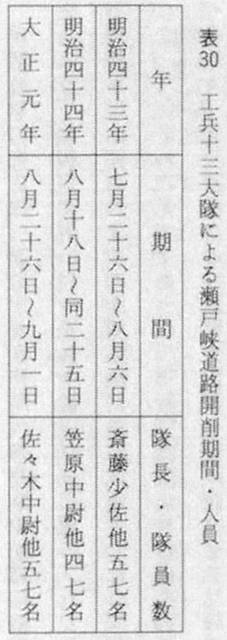 表30　工兵十三大隊による瀬戸峡道路開削期間・人員
年
期間
隊長・隊員数
明治四十三年
七月二十六日～八月六日
斎藤少佐他五七名
明治四十四年
八月十八日～同二十五日
笠原中尉他四七名
大正元年
八月二十六日～九月一日
佐々木中尉他五七名